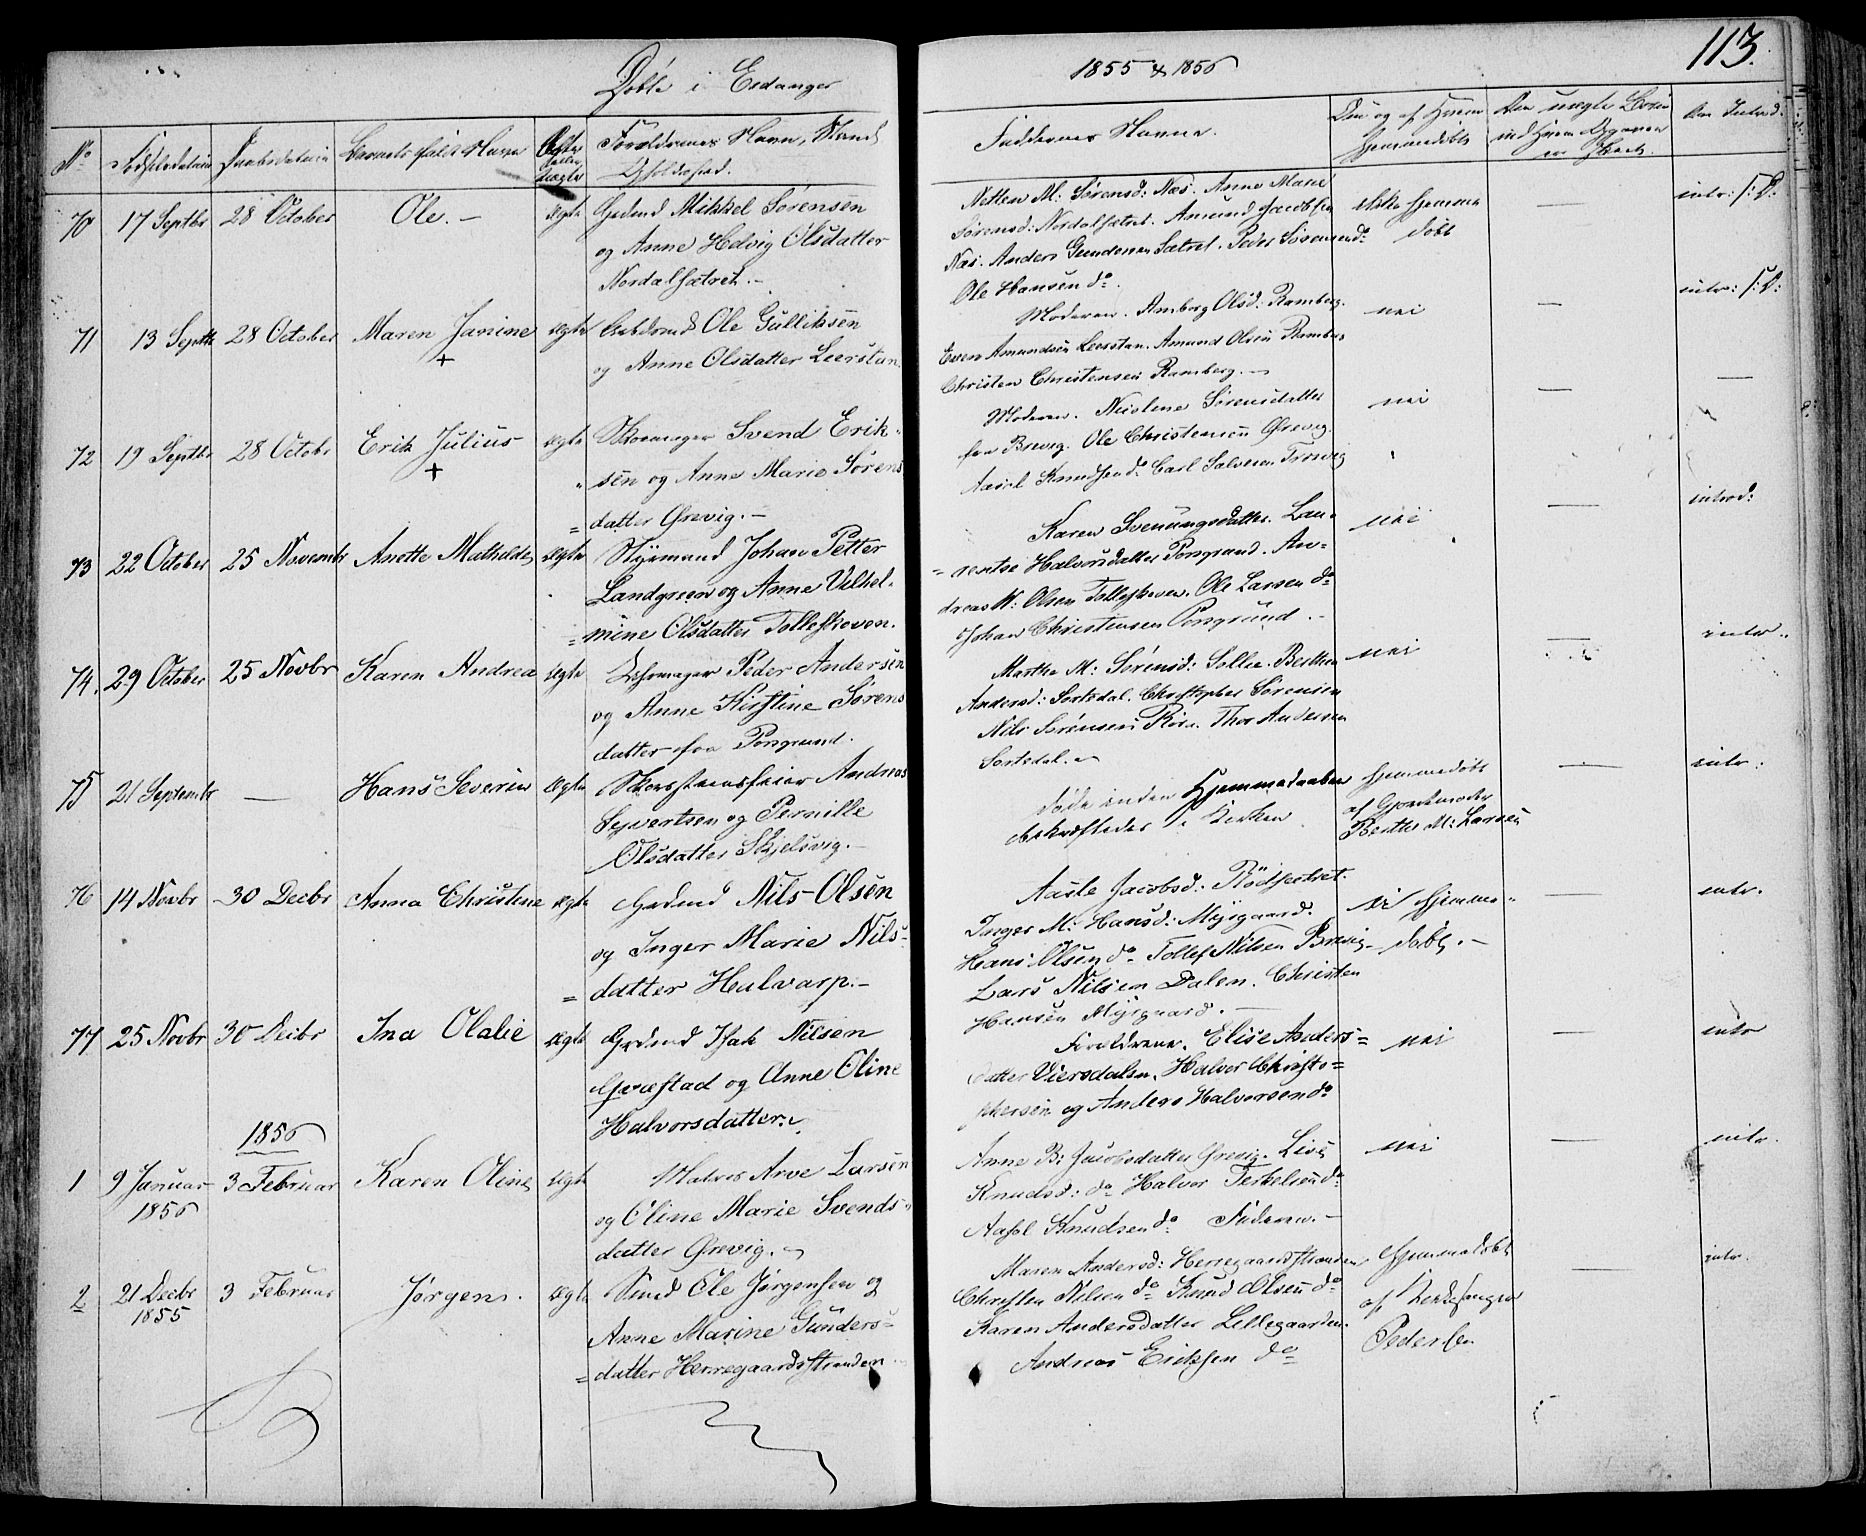 Døbte i Eidanger
1855 & 1856
113.
No
Fødselsdatum
Daabsdatum
Barnets fulde Navn
Ægte eller uægte
Forældrenes Navn, Stand
Opholdssted.
Faddernes Navne.
Om og af Hvem
hjemmedøbt
70 17 Septbr 28 October Ole. – ægte
Grdmd Mikkel Sørensen
og Anne Hedvig Olsdatter
Nordalsætret. –
Netten M: Sørensd: Næs. Anne Marie
Sørensd: Nordalsætret. Amund Jacobsen
Næs. Anders Gundersen Sætret. Peder Sørensen do
Ole Hansen do.
ikke hjemme
døbt
—
intr: /:P:
71 13 Septbr 28 October Maren Janine ægte
+
Ole Gulliksen
og Anne Olsdatter Leerstan.
Moderen. Amborg Olsd: Ramberg.
Even Amundsen Leerstan. Amund Olsen Ramberg
Christen Christensen Ramberg. –
nei
—
intr: /:P:
72 19 Septbr 28 Octobr Erik Julius ægte
+
Skomager Svend Erik-
sen og Anne Marie Sørens
datter Ørevig. –
Moderen. Nicoline Sørensdatter
fra Brevig. Ole Christensen Ørevig.
Aasol Knudsen do Carl Salvesen Trosvig
nei
—
—
73 22 October 25 Novembr Anette Mathilde ægte
Styrmand Johan Petter
Landgreen og Anne Vilhel-
mine Olsdatter Tollefskoven.
Karen Svenungsdatter. Lau-
rentse Halvorsdatter Porsgrund. An-
dreas M: Olsen Tollefskoven. Ole Larsen do
Johan Christensen Porsgrund. –
nei
—
introd:
74. 29 October 25 Novbr Karen Andrea ægte
Peder Andersen
og Anne Kirstine Sørens
datter fra Porsgrund.
Marthe M: Sørensd: Sollie. Berthea
Andersd: Sortedal. Christopher Sørensen
Nils Sørensen Röra. Thor Andersen
Sortedal.
nei
—
intr.
75 21 Septembr — Hans Severin ægte
Skorsteensfeier Andreas
Syvertsen og Pernille
Olsdatter Skjelsvig. –
døde inden Hjemmedaaben
bekræftedes i Kirken
hjemmedøbt
af Gjordemoder
Berthe M: Larsen
—
intr:
76 14 Novbr 30 Decbr Anna Christine ægte
Grdmd Nils Olsen
og Inger Marie Nils-
datter Halvarp. –
Aaste Jacobsd: Rödsætret.
Inger M: Hansd: Myrgaard.
Hans Olsen do Tollef Nilsen Brevig
Lars Nilsen Dalen. Christen
Hansen Myrgaard. –
ei hjemme-
døbt. –
—
intr.
77 25 Novbr 30 Decbr Ina Olalie ægte
Grdmd Isak Nilsen
Gravstad og Anne Oline
Halvorsdatter.
Forældrene. Elise Anders-
datter Viersdalen. Halvor Christo-
phersen og Anders Halvorsen do
nei
—
intr
1856
1 9 Januar 3 Februar Karen Oline ægte
1856
Matros Arve Larsen
og Oline Marie Svends-
datter Ørevig.
Anne B: Jacobsdatter Ørevig. Live
Knudsd: do Halvor Terkelsen do
Aasol Knudsen do Faderen. –
nei
—
intr.
2 21 Decbr 3 Februar Jørgen. ægte
1855
Smed Ole Jørgensen og
Anne Marine Gunders-
datter Herregaardsstranden
Maren Andersd: Herregaardsstranden
Christen Nilsen do Knud Olsen do
Karen Andersdatter Lillegaarden.
Andreas Eriksen do
Hjemmedøbt
af Kirkesanger
Pedersen
—
intr.